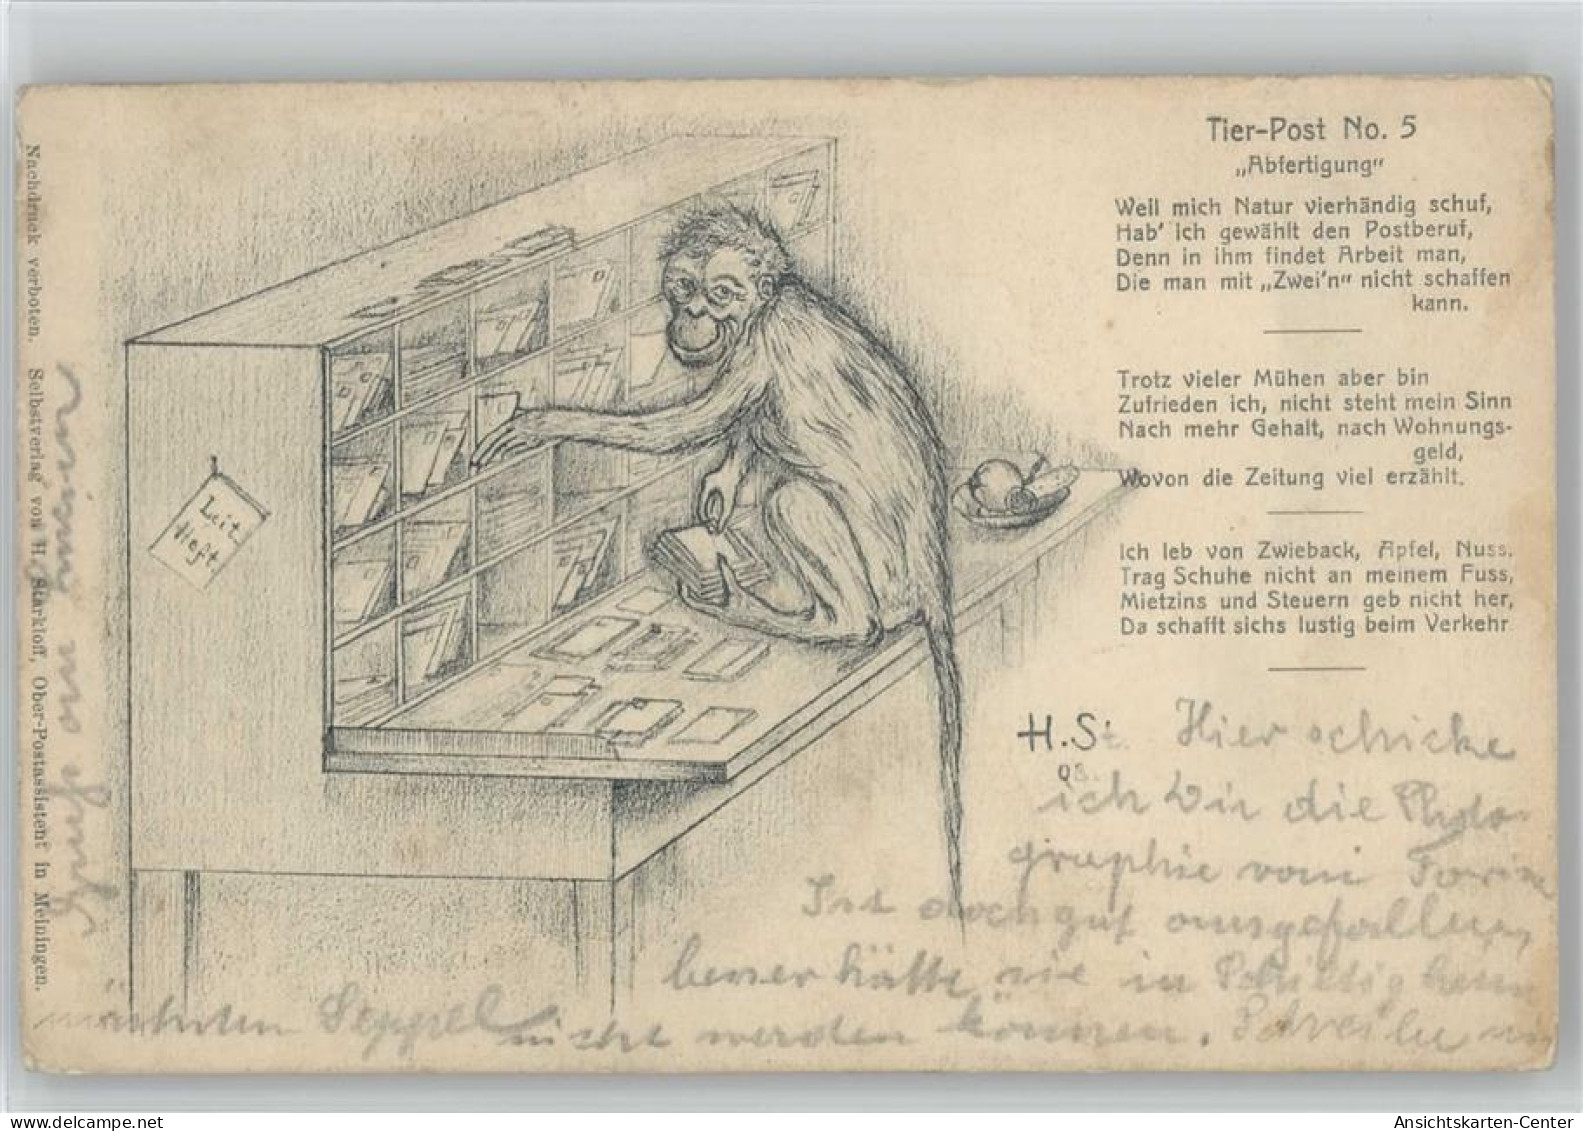 Tier-Post No. 5
„Abfertigung“
Weil mich Natur vierhändig schuf,
Hab' ich gewählt den Postberuf,
Denn in ihm findet Arbeit man,
Die man mit „Zwei'n“ nicht schaffen
kann.
Trotz vieler Mühen aber bin
Zufrieden ich, nicht steht mein Sinn
Nach mehr Gehalt, nach Wohnungs-
geld,
Wovon die Zeitung viel erzählt.
Ich leb von Zwieback, Apfel, Nuss.
Trag Schuhe nicht an meinem Fuss,
Mietzins und Steuern geb nicht her,
Da schafft sichs lustig beim Verkehr
H.St.
Leit
Heft
Hier schicke
ich Dir die Photo-
graphie vom
Ist doch gut ausgefallen,
besser hätte sie in
nicht werden können. Schreibe
Seppel
Gruß an meinen
Nachdruck verboten. Selbstverlag von H. Starkloff, Ober-Postassistent in Meiningen.
www.delcampe.net
Ansichtskarten-Center